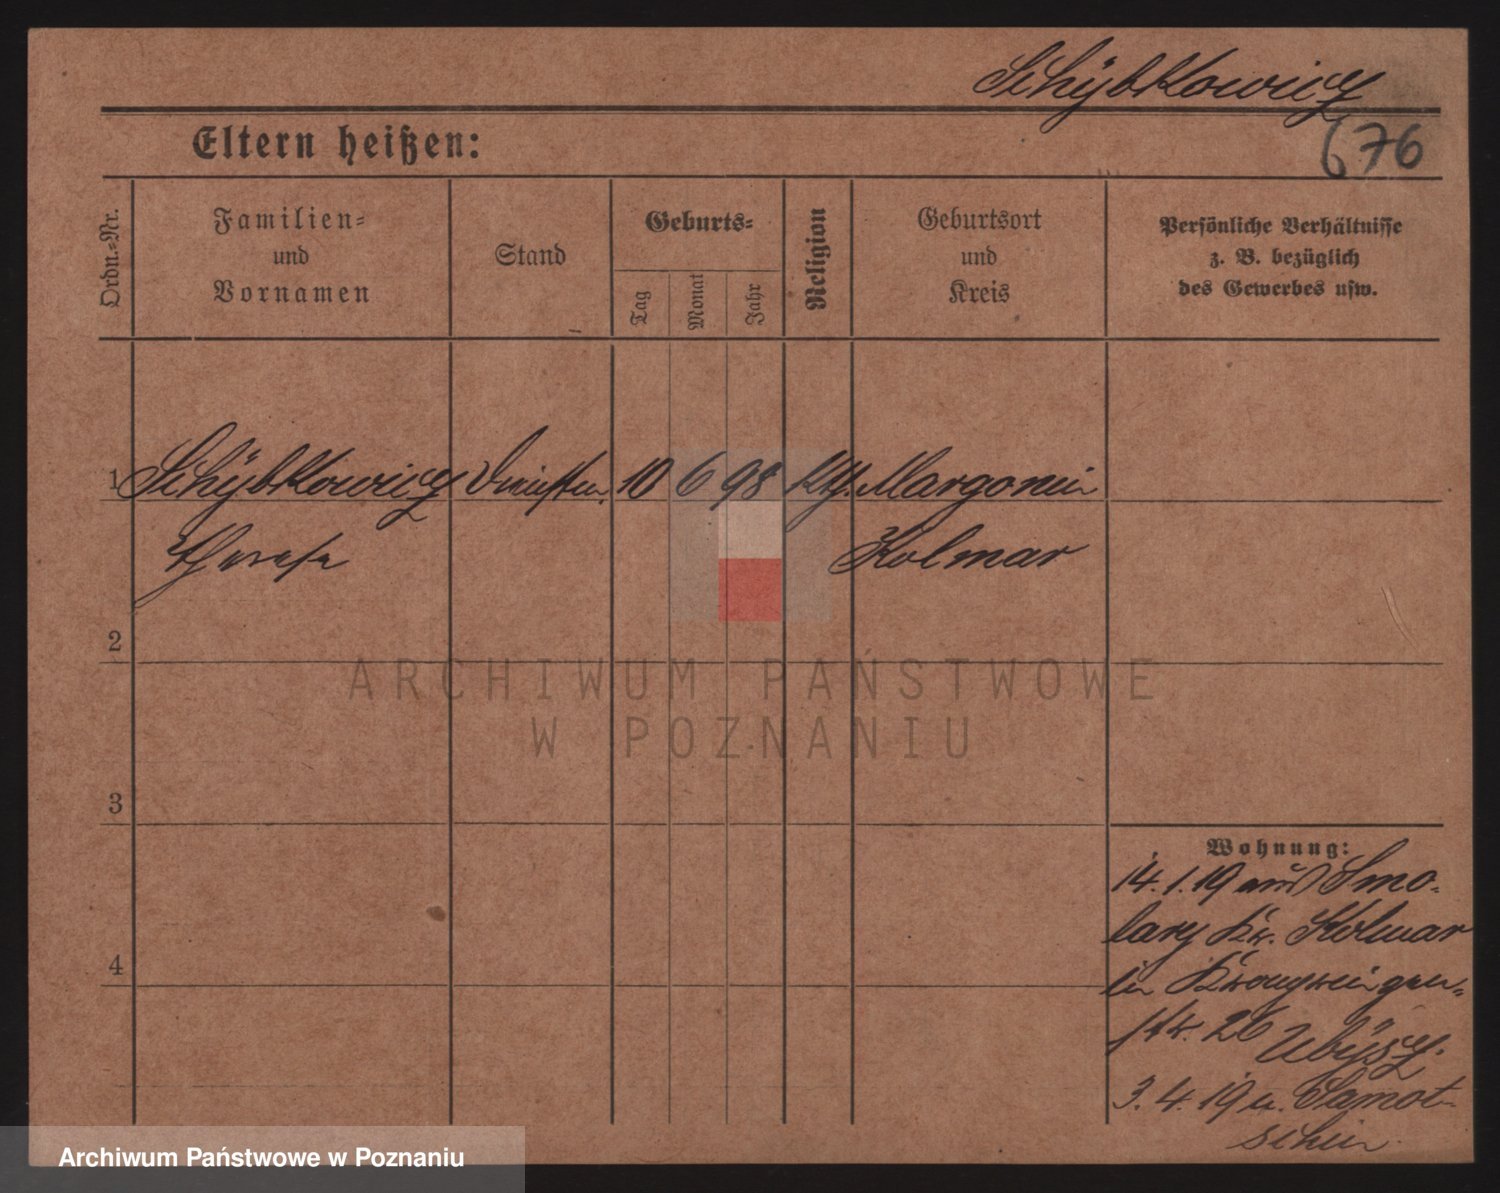 Schÿbkowicz
676
Eltern heißen:
Ordn.=Nr.
Familien=
und
Vornamen
Stand
Geburts=
Tag
Monat
Jahr
Religion
Geburtsort
und
Kreis
Persönliche Verhältnisse
z. B. bezüglich
des Gewerbes usw.
1 Schÿbkowicz 10 6 98 kth. Margonin
Therese Kolmar
2
3
4
Wohnung:
14.1.19 aus Smo-
lary Kr. Kolmar
in
str. 26 Ubÿsz.
3.4.19 n. Samot-
schin
ARCHIWUM PAŃSTWOWE
W POZNANIU
Archiwum Państwowe w Poznaniu